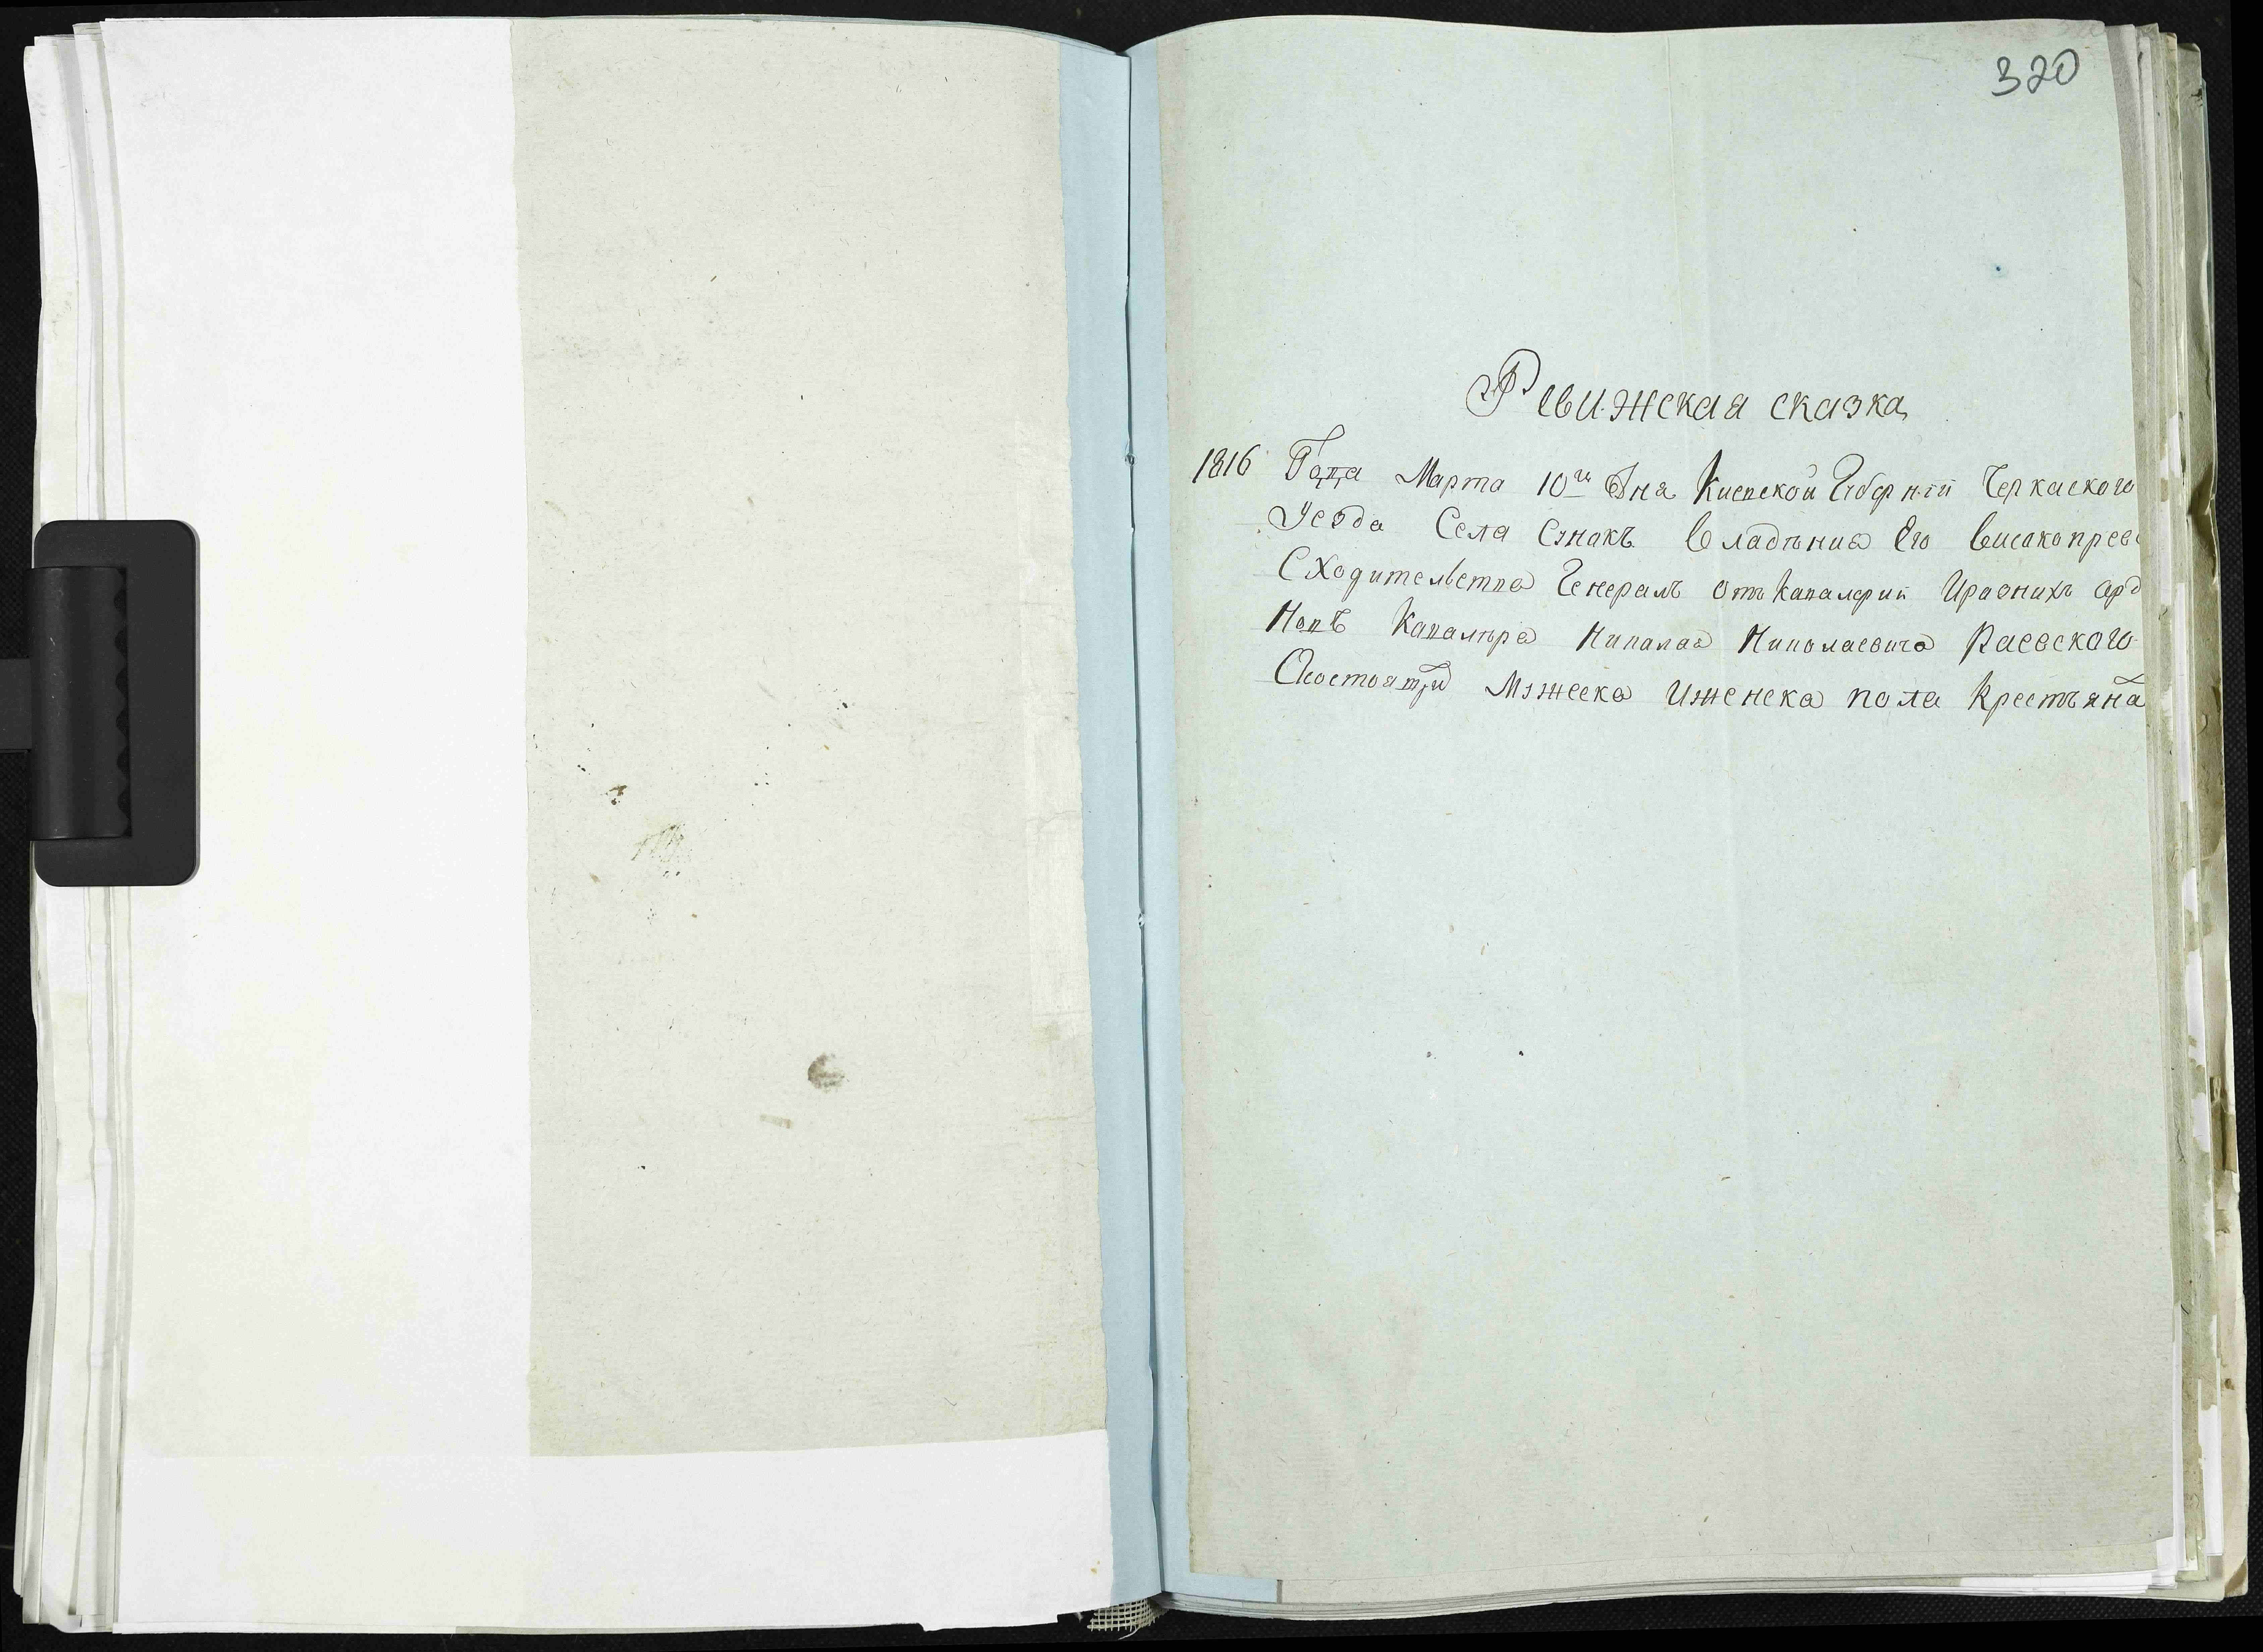 320
Ревижская сказка
1816 Года Марта 10го Дня Киевской Губернии Черкаского
Уезда Села Сунакъ Владѣния Его Високопрево
Сходителства Генералъ отъ Кавалерии Иразнихъ орд
Новъ Кавалѣра Николая Николаевича Раевского
Осостоящи Мужеска Иженска пола Крестъяна